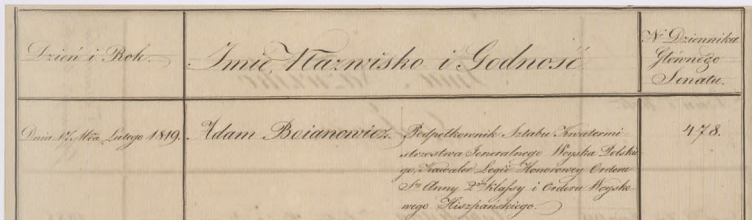 Dzień i Rok.
Imię, Nazwisko i Godność
Nr Dziennika
Głównego
Senatu.
Dnia 17 Mca Lutego 1819.
Adam Boianowicz
Podpółkownik Sztabu Kwatermi
strzostwa Jeneralnego Woyska Polskie
go, Kawaler Legii Honorowey Orderu
Stey Anny 2ey klassy i Orderu Woysko
wego Hiszpańskiego.
478.